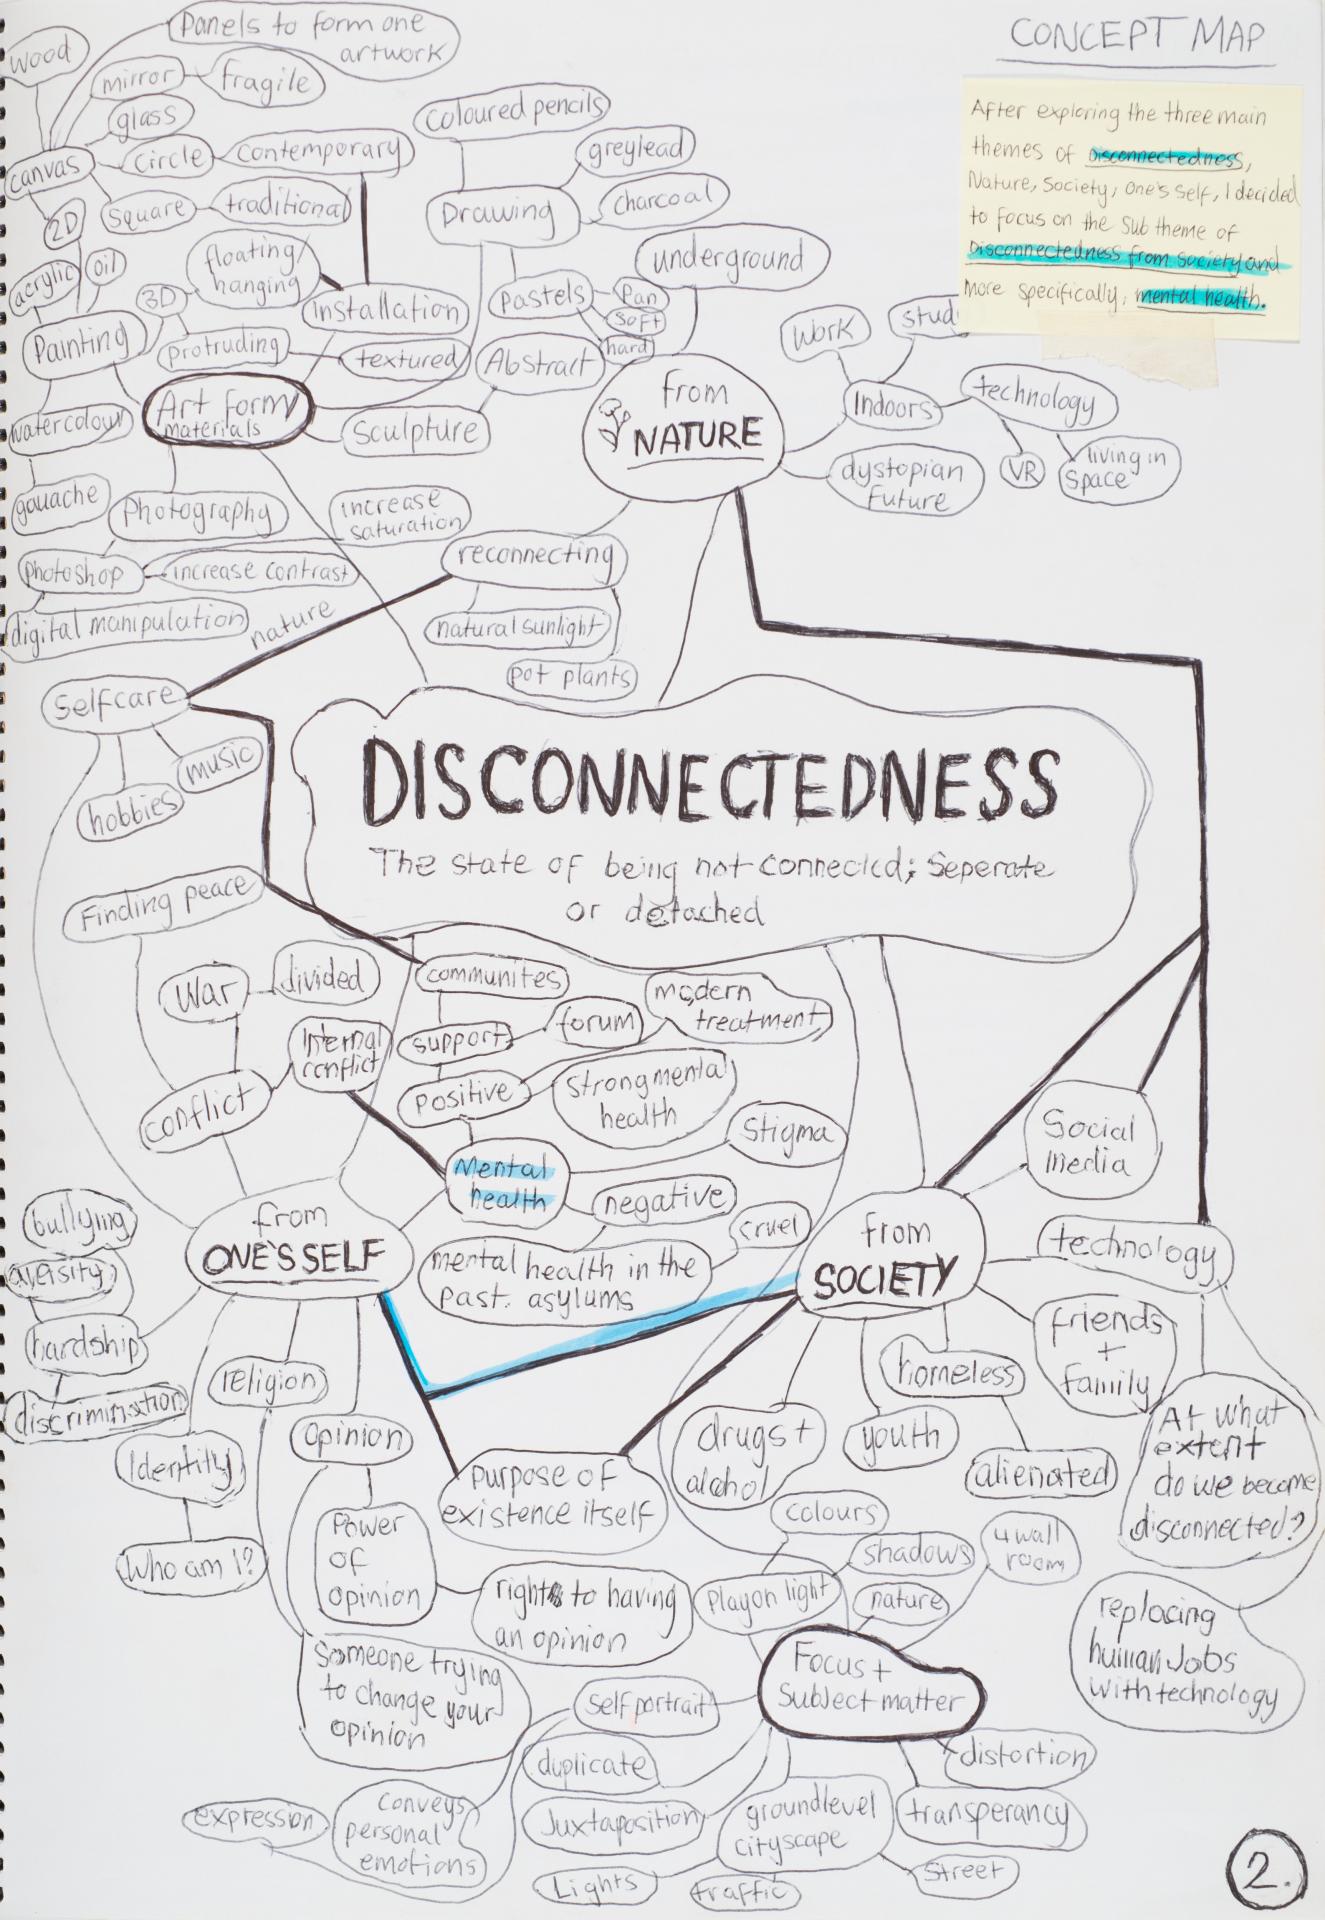 CONCEPT MAP
After exploring the three main
themes of Disconnectedness,
Nature, Society, One's self, I decided
to focus on the sub theme of
Disconnectedness from society and
more specifically, mental health.
Panels to form one
artwork
wood
mirror
fragile
glass
canvas
circle
contemporary
square
traditional
2D
acrylic
oil
3D
floating/
hanging
Installation
Painting
protruding
textured
Art form/
materials
sculpture
Abstract
watercolour
gouache
Photography
increase
saturation
photoshop
increase contrast
digital manipulation
coloured pencils
greylead
Drawing
charcoal
pastels
Pan
soft
hard
underground
from
NATURE
work
stud
Indoors
technology
VR
living in
space
dystopian
future
reconnecting
natural sunlight
pot plants
nature
Selfcare
music
hobbies
DISCONNECTEDNESS
The state of being not connected; Seperate
or detached
Finding peace
War
divided
Internal
conflict
conflict
communites
support
forum
modern
treatment
positive
strong mental
health
Mental
health
Stigma
negative
cruel
mental health in the
past. asylums
from
ONE'S SELF
from
SOCIETY
Social
media
technology
friends
+
family
At what
extent
do we become
disconnected?
replacing
human Jobs
with technology
bullying
hardship
discrimination
religion
Identitiy
Who am I?
opinion
Power
of
opinion
rights to having
an opinion
Someone trying
to change your
opinion
purpose of
existence itself
drugs +
alcohol
youth
homeless
alienated
colours
shadows
4 wall
room
Play on light
nature
Focus +
Subject matter
Self portrait
duplicate
Juxtaposition
Lights
groundlevel
cityscape
traffic
street
transperancy
distortion
conveys
personal
emotions
expression
2.